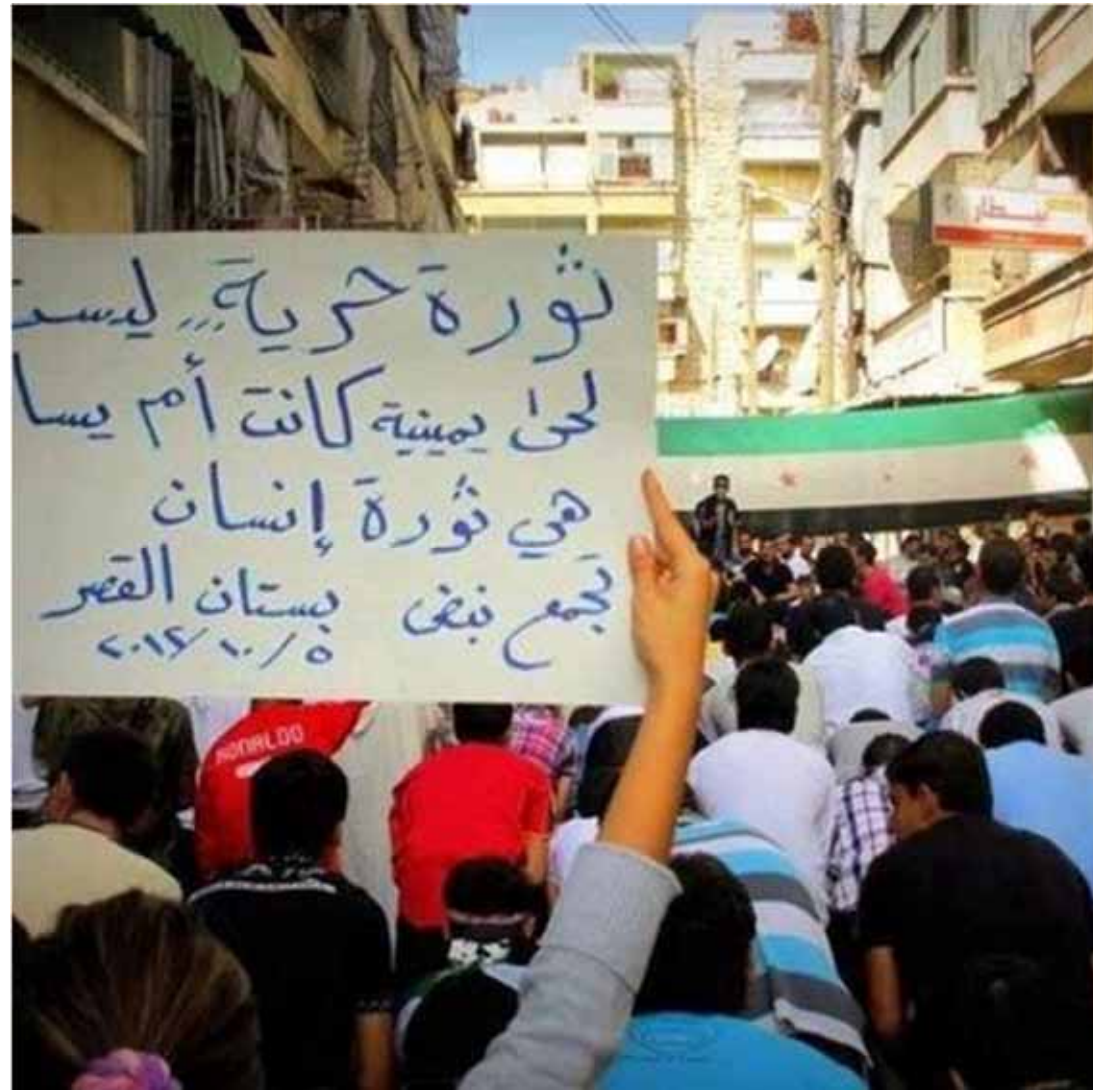 ثورة حرية,,, ليست
لحىً يمينية كانت أم يسا
هي ثورة إنسان
تجمع نبض بستان القصر
٢٠١٢/١٠/٥
RONALDO